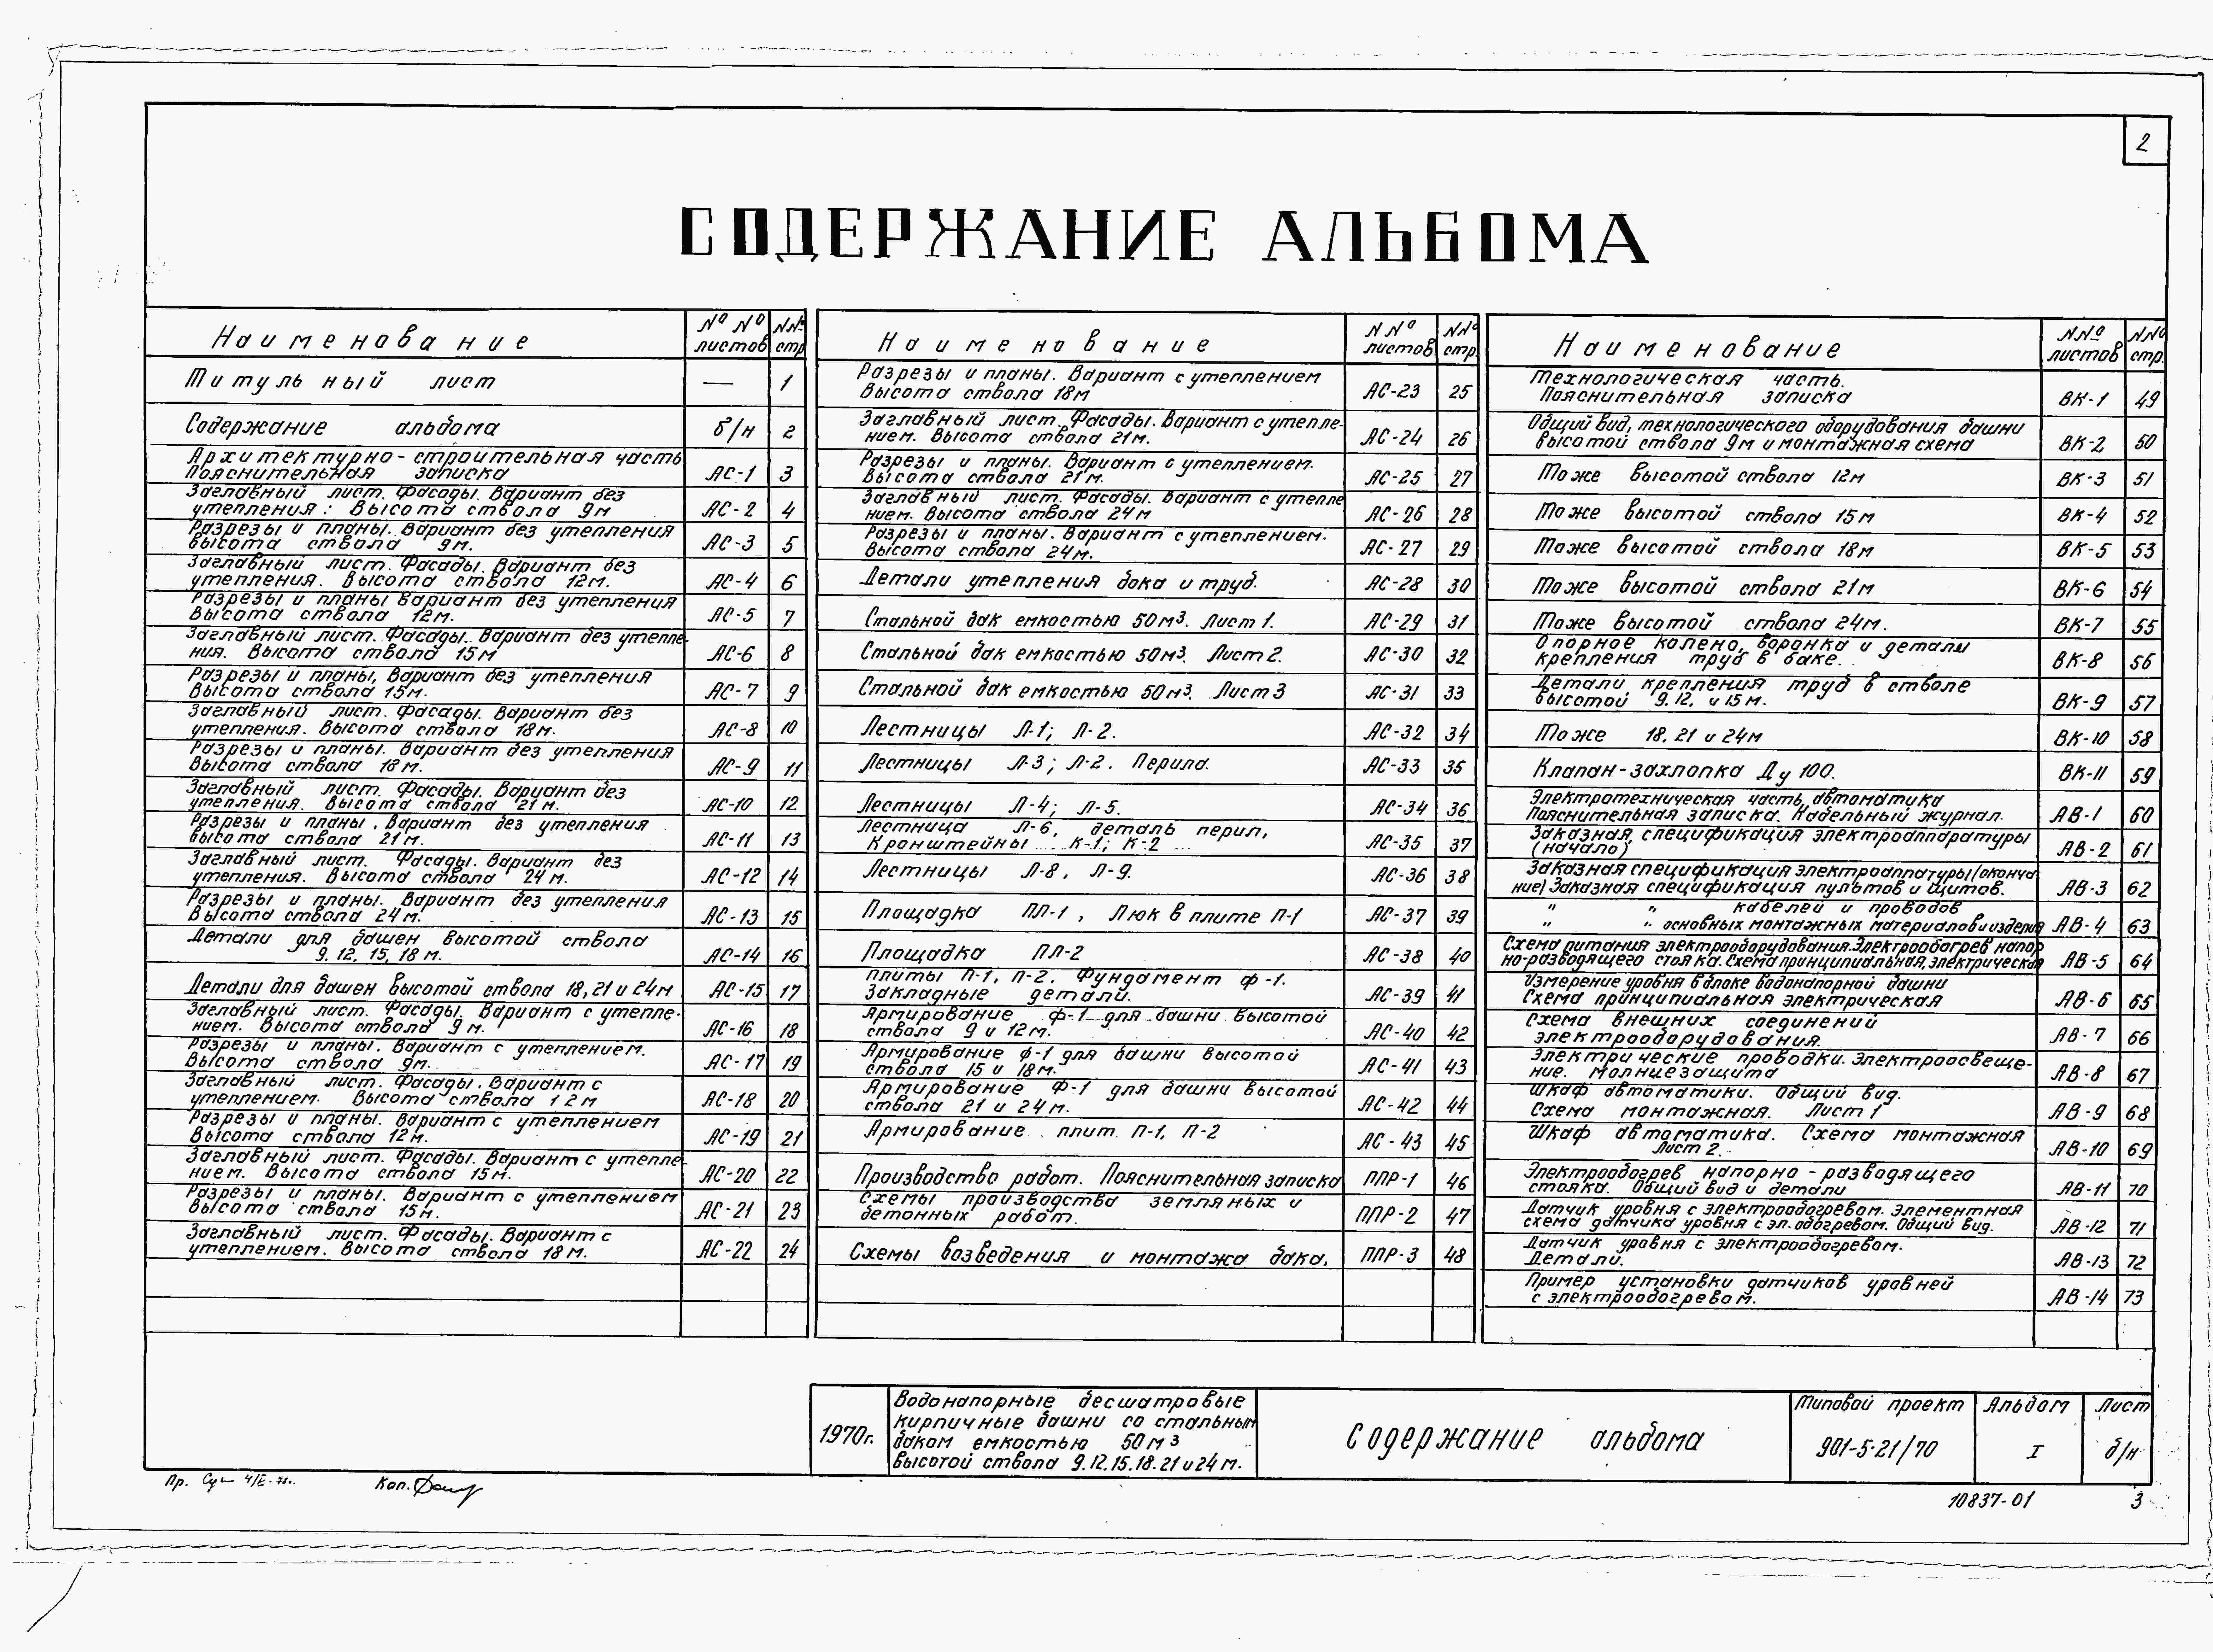 2
СОДЕРЖАНИЕ АЛЬБОМА
Наименование №№ листов №№ стр.
Титульный лист — 1
Содержание альбома б/н 2
Архитектурно-строительная часть
Пояснительная записка АС-1 3
Заглавный лист. Фасады. Вариант без
утепления. Высота ствола 9м. АС-2 4
Разрезы и планы. Вариант без утепления
высота ствола 9м. АС-3 5
Заглавный лист. Фасады. Вариант без
утепления. Высота ствола 12м. АС-4 6
Разрезы и планы вариант без утепления
Высота ствола 12м. АС-5 7
Заглавный лист. Фасады. Вариант без утепле-
ния. Высота ствола 15м АС-6 8
Разрезы и планы, Вариант без утепления
Высота ствола 15м. АС-7 9
Заглавный лист. Фасады. Вариант без
утепления. Высота ствола 18м. АС-8 10
Разрезы и планы. Вариант без утепления
Высота ствола 18м. АС-9 11
Заглавный лист. Фасады. Вариант без
утепления. Высота ствола 21м. АС-10 12
Разрезы и планы. Вариант без утепления
высота ствола 21м. АС-11 13
Заглавный лист. Фасады. Вариант без
утепления. Высота ствола 24м. АС-12 14
Разрезы и планы. Вариант без утепления
Высота ствола 24м. АС-13 15
Детали для башен высотой ствола
9. 12. 15, 18 м. АС-14 16
Детали для башен высотой ствола 18, 21 и 24м АС-15 17
Заглавный лист. Фасады. Вариант с утепле-
нием. Высота ствола 9м. АС-16 18
Разрезы и планы. Вариант с утеплением.
Высота ствола 9м. АС-17 19
Заглавный лист. Фасады. Вариант с
утеплением. Высота ствола 12м АС-18 20
Разрезы и планы. Вариант с утеплением
Высота ствола 12м. АС-19 21
Заглавный лист. Фасады. Вариант с утепле-
нием. Высота ствола 15м. АС-20 22
Разрезы и планы. Вариант с утеплением
Высота ствола 15м. АС-21 23
Заглавный лист. Фасады. Вариант с
утеплением. Высота ствола 18м. АС-22 24
Наименование №№ листов №№ стр.
Разрезы и планы. Вариант с утеплением
Высота ствола 18м АС-23 25
Заглавный лист. Фасады. Вариант с утепле-
нием. Высота ствола 21м. АС-24 26
Разрезы и планы. Вариант с утеплением.
Высота ствола 21м. АС-25 27
Заглавный лист. Фасады. Вариант с утепле
нием. Высота ствола 24м АС-26 28
Разрезы и планы. Вариант с утеплением.
Высота ствола 24м. АС-27 29
Детали утепления бака и труб. АС-28 30
Стальной бак емкостью 50м³. Лист 1. АС-29 31
Стальной бак емкостью 50м³. Лист 2. АС-30 32
Стальной бак емкостью 50м³. Лист 3 АС-31 33
Лестницы Л-1; Л-2. АС-32 34
Лестницы Л-3; Л-2. Перила. АС-33 35
Лестницы Л-4; Л-5. АС-34 36
Лестница Л-6, деталь перил,
Кронштейны К-1; К-2 АС-35 37
Лестницы Л-8, Л-9. АС-36 38
Площадка ПЛ-1, Люк в плите П-1 АС-37 39
Площадка ПЛ-2 АС-38 40
Плиты П-1, П-2. Фундамент Ф-1.
Закладные детали. АС-39 41
Армирование Ф-1 для башни высотой
ствола 9 и 12м. АС-40 42
Армирование Ф-1 для башни высотой
ствола 15 и 18м. АС-41 43
Армирование Ф-1 для башни высотой
ствола 21 и 24м. АС-42 44
Армирование плит П-1, П-2 АС-43 45
Производство работ. Пояснительная записка ППР-1 46
Схемы производства земляных и
бетонных работ. ППР-2 47
Схемы возведения и монтажа бака, ППР-3 48
Наименование №№ листов №№ стр.
Технологическая часть.
Пояснительная записка ВК-1 49
Общий вид, технологического оборудования башни
высотой ствола 9м и монтажная схема ВК-2 50
То же высотой ствола 12м ВК-3 51
То же высотой ствола 15м ВК-4 52
То же высотой ствола 18м ВК-5 53
То же высотой ствола 21м ВК-6 54
То же высотой ствола 24м. ВК-7 55
Опорное колено, воронка и детали
крепления труб в баке. ВК-8 56
Детали крепления труб в стволе
высотой 9. 12. и 15м. ВК-9 57
То же 18. 21 и 24м ВК-10 58
Клапан-захлопка Ду 100. ВК-11 59
Электротехническая часть, автоматика
Пояснительная записка. Кабельный журнал. АВ-1 60
Заказная, спецификация электроаппаратуры
(начало) АВ-2 61
Заказная спецификация электроаппатуры (оконча
ние) Заказная спецификация пультов и щитов. АВ-3 62
" " кабелей и проводов
" " основных монтажных материалов и изделия АВ-4 63
Схема питания электрооборудования. Электрообогрев напор
но-разводящего стояка. Схема принципиальная, электрическая АВ-5 64
Измерение уровня в блоке водонапорной башни
Схема принципиальная электрическая АВ-6 65
Схема внешних соединений
электрооборудования. АВ-7 66
Электрические проводки. Электроосвеще-
ние. Молниезащита АВ-8 67
Шкаф автоматики. Общий вид.
Схема монтажная. Лист 1 АВ-9 68
Шкаф автоматика. Схема монтажная
Лист 2. АВ-10 69
Электрообогрев напорно-разводящего
стояка. Общий вид и детали АВ-11 70
Датчик уровня с электрообогревом. Элементная
схема датчика уровня с эл. обогревом. Общий вид. АВ-12 71
Датчик уровня с электрообогревом.
Детали. АВ-13 72
Пример установки датчиков уровней
с электрообогревом. АВ-14 73
1970г.
Водонапорные бесшатровые
кирпичные башни со стальным
баком емкостью 50 м³
высотой ствола 9. 12. 15. 18. 21 и 24 м.
Содержание альбома
Типовой проект
901-5-21/70
Альбом
I
Лист
б/н
Пр.
Коп.
10837-01 3